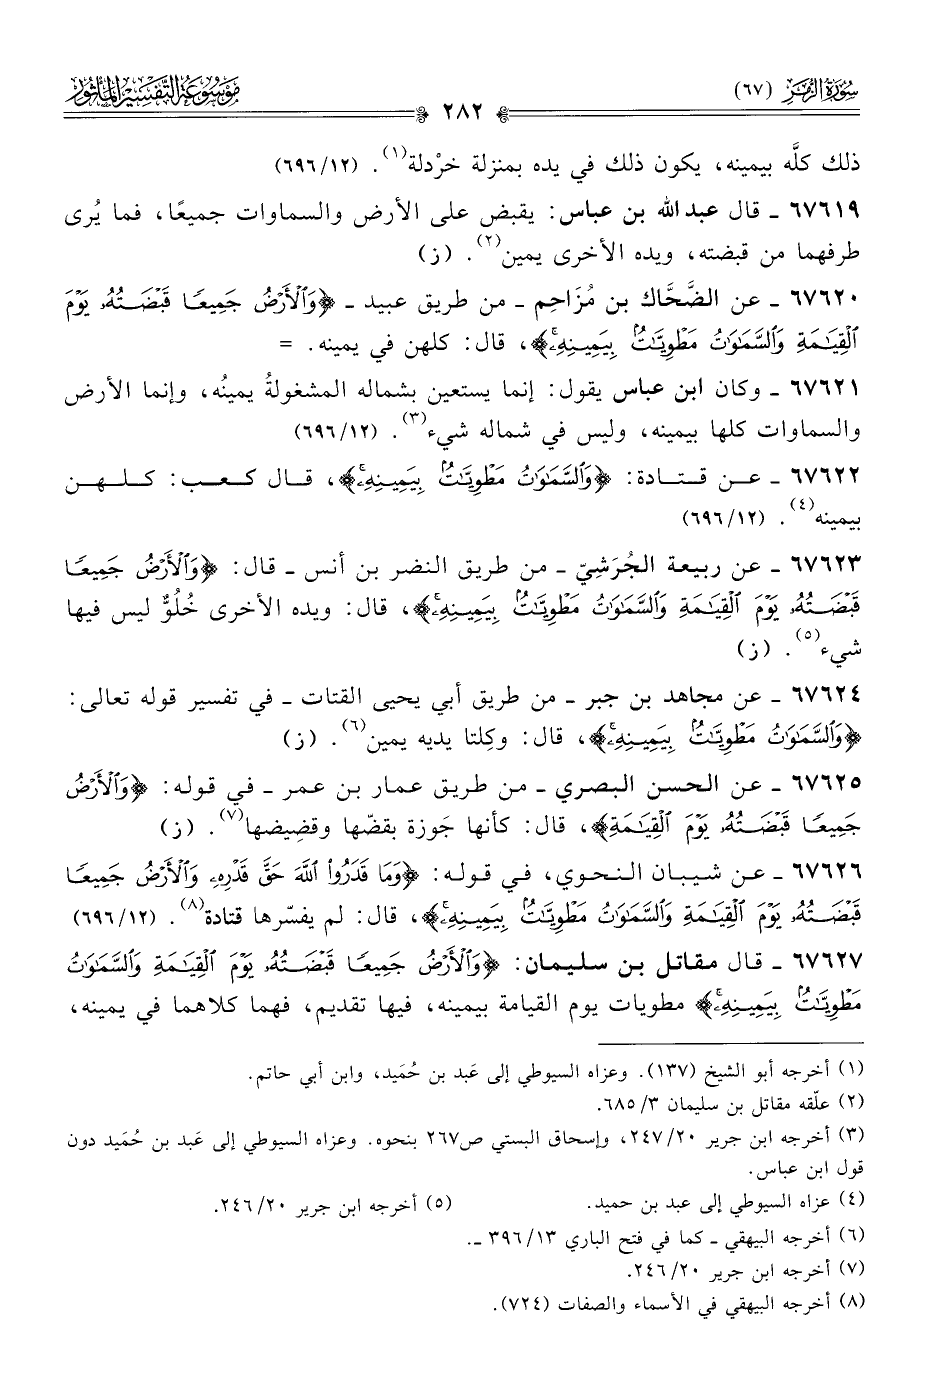 سُورَةُ الزُّمَر (٦٧)
٢٨٢
مَوْسُوعَةُ التَّفْسِيرِ المَأْثُور
ذلك كلَّه بيمينه، يكون ذلك في يده بمنزلة خرْدلة(١). (٦٩٦/١٢)
٦٧٦١٩ ـ قال عبد الله بن عباس: يقبض على الأرض والسماوات جميعًا، فما يُرى
طرفهما من قبضته، ويده الأخرى يمين(٢). (ز)
٦٧٦٢٠ ـ عن الضَّحَّاك بن مُزَاحِم ـ من طريق عبيد ـ ﴿وَٱلْأَرْضُ جَمِيعًا قَبْضَتُهُۥ يَوْمَ
ٱلْقِيَٰمَةِ وَٱلسَّمَٰوَٰتُ مَطْوِيَّٰتُۢ بِيَمِينِهِۦۚ﴾، قال: كلهن في يمينه. =
٦٧٦٢١ ـ وكان ابن عباس يقول: إنما يستعين بشماله المشغولةُ يمينُه، وإنما الأرض
والسماوات كلها بيمينه، وليس في شماله شيء(٣). (٦٩٦/١٢)
٦٧٦٢٢ ـ عن قتادة: ﴿وَٱلسَّمَٰوَٰتُ مَطْوِيَّٰتُۢ بِيَمِينِهِۦۚ﴾، قال كعب: كلهن
بيمينه(٤). (٦٩٦/١٢)
٦٧٦٢٣ ـ عن ربيعة الجُرَشِيّ ـ من طريق النضر بن أنس ـ قال: ﴿وَٱلْأَرْضُ جَمِيعًا
قَبْضَتُهُۥ يَوْمَ ٱلْقِيَٰمَةِ وَٱلسَّمَٰوَٰتُ مَطْوِيَّٰتُۢ بِيَمِينِهِۦۚ﴾، قال: ويده الأخرى خُلُوٌّ ليس فيها
شيء(٥). (ز)
٦٧٦٢٤ ـ عن مجاهد بن جبر ـ من طريق أبي يحيى القتات ـ في تفسير قوله تعالى:
﴿وَٱلسَّمَٰوَٰتُ مَطْوِيَّٰتُۢ بِيَمِينِهِۦۚ﴾، قال: وكِلتا يديه يمين(٦). (ز)
٦٧٦٢٥ ـ عن الحسن البصري ـ من طريق عمار بن عمر ـ في قوله: ﴿وَٱلْأَرْضُ
جَمِيعًا قَبْضَتُهُۥ يَوْمَ ٱلْقِيَٰمَةِ﴾، قال: كأنها جَوزة بقضّها وقضِيضها(٧). (ز)
٦٧٦٢٦ ـ عن شيبان النحوي، في قوله: ﴿وَمَا قَدَرُوا۟ ٱللَّهَ حَقَّ قَدْرِهِۦ وَٱلْأَرْضُ جَمِيعًا
قَبْضَتُهُۥ يَوْمَ ٱلْقِيَٰمَةِ وَٱلسَّمَٰوَٰتُ مَطْوِيَّٰتُۢ بِيَمِينِهِۦۚ﴾، قال: لم يفسّرها قتادة(٨). (٦٩٦/١٢)
٦٧٦٢٧ ـ قال مقاتل بن سليمان: ﴿وَٱلْأَرْضُ جَمِيعًا قَبْضَتُهُۥ يَوْمَ ٱلْقِيَٰمَةِ وَٱلسَّمَٰوَٰتُ
مَطْوِيَّٰتُۢ بِيَمِينِهِۦۚ﴾ مطويات يوم القيامة بيمينه، فيها تقديم، فهما كلاهما في يمينه،
(١) أخرجه أبو الشيخ (١٣٧). وعزاه السيوطي إلى عَبد بن حُمَيد، وابن أبي حاتم.
(٢) علّقه مقاتل بن سليمان ٣/ ٦٨٥.
(٣) أخرجه ابن جرير ٢٠/ ٢٤٧، وإسحاق البستي ص٢٦٧ بنحوه. وعزاه السيوطي إلى عَبد بن حُمَيد دون
قول ابن عباس.
(٤) عزاه السيوطي إلى عبد بن حميد. (٥) أخرجه ابن جرير ٢٠/ ٢٤٦.
(٦) أخرجه البيهقي ـ كما في فتح الباري ١٣/ ٣٩٦ ـ.
(٧) أخرجه ابن جرير ٢٠/ ٢٤٦.
(٨) أخرجه البيهقي في الأسماء والصفات (٧٢٤).